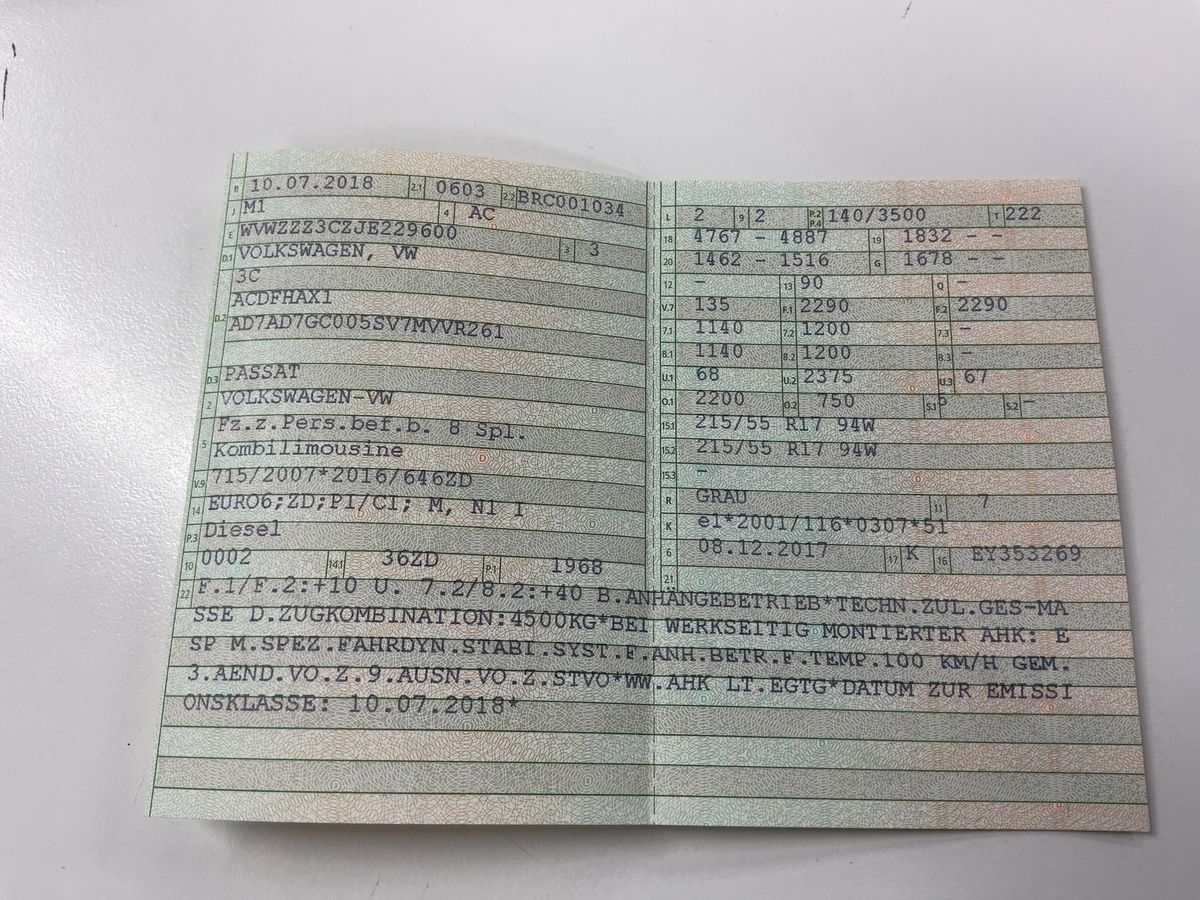 B 10.07.2018 2.1 0603 2.2 BRC001034
J M1 4 AC
E WVWZZZ3CZJE229600
D.1 VOLKSWAGEN, VW 3 3
3C
D.2 ACDFHAX1
AD7AD7GC005SV7MVVR261
D.3 PASSAT
2 VOLKSWAGEN-VW
5 Fz.z.Pers.bef.b. 8 Spl.
Kombilimousine
V.9 715/2007*2016/646ZD
14 EURO6;ZD;PI/CI; M, N1 I
P.3 Diesel
10 0002 14.1 36ZD P.1 1968
L 2 9 2 P.2 P.4 140/3500 T 222
18 4767 - 4887 19 1832 - -
20 1462 - 1516 G 1678 - -
12 - 13 90 Q -
V.7 135 F.1 2290 F.2 2290
7.1 1140 7.2 1200 7.3 -
8.1 1140 8.2 1200 8.3 -
U.1 68 U.2 2375 U.3 67
O.1 2200 O.2 750 S.1 5 S.2 -
15.1 215/55 R17 94W
15.2 215/55 R17 94W
15.3 -
R GRAU 11 7
K e1*2001/116*0307*51
6 08.12.2017 17 K 16 EY353269
21
22 F.1/F.2:+10 U. 7.2/8.2:+40 B.ANHÄNGEBETRIEB*TECHN.ZUL.GES-MA
SSE D.ZUGKOMBINATION:4500KG*BEI WERKSEITIG MONTIERTER AHK: E
SP M.SPEZ.FAHRDYN.STABI.SYST.F.ANH.BETR.F.TEMP.100 KM/H GEM.
3.AEND.VO.Z.9.AUSN.VO.Z.STVO*WW.AHK LT.EGTG*DATUM ZUR EMISSI
ONSKLASSE: 10.07.2018*